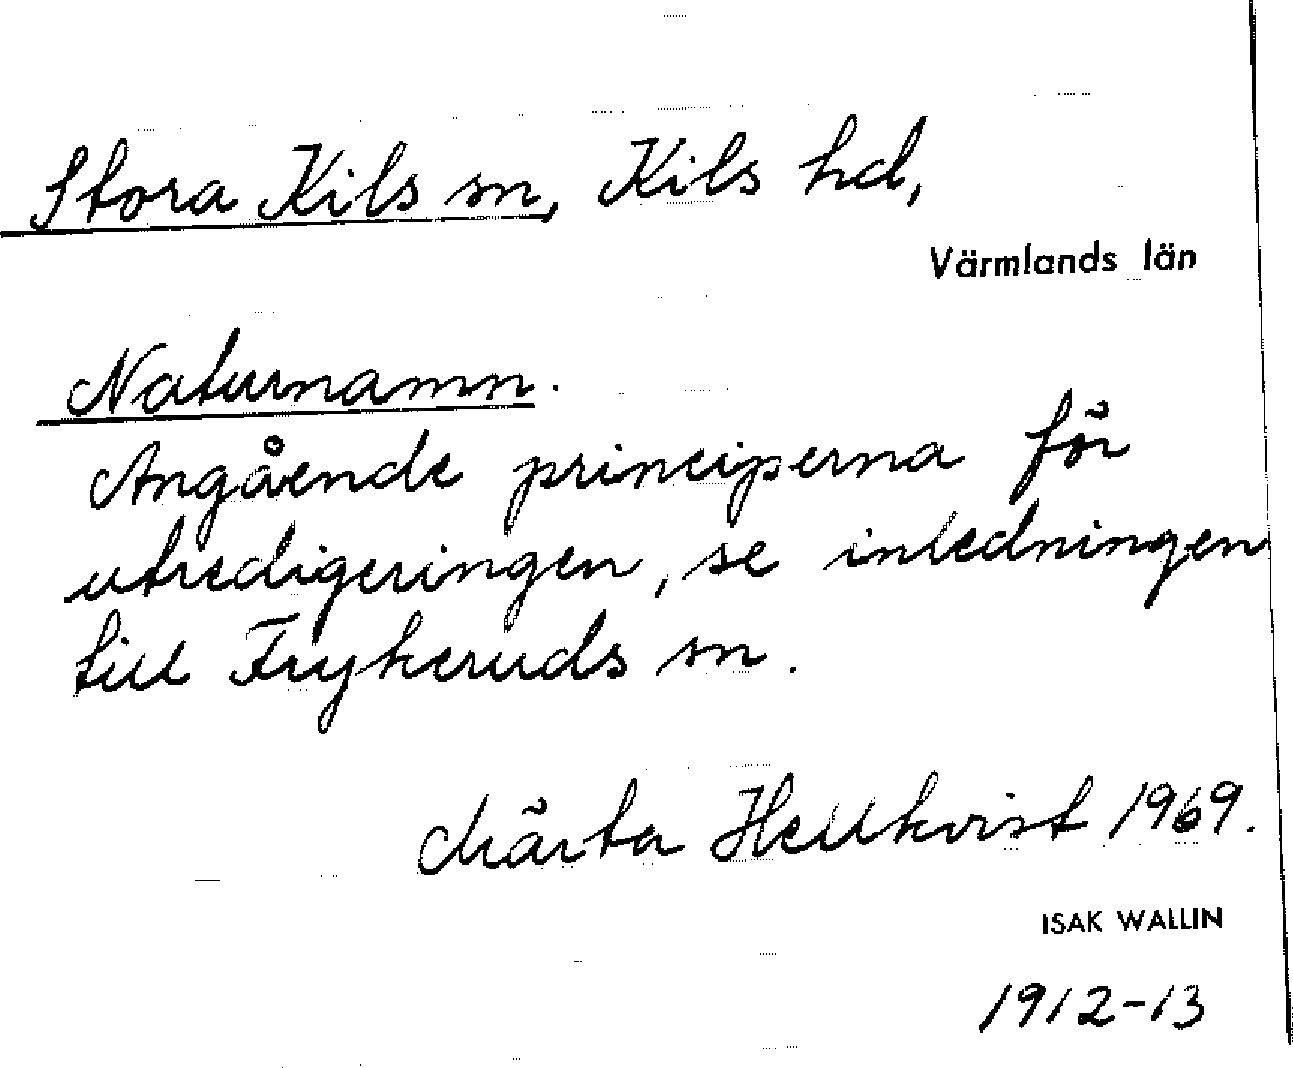 Stora Kils sn, Kils hd,
Värmlands län
Naturnamn.
Angående principerna för
utredigeringen, se inledningen
till Frykeruds sn.
Märta Hellkvist 1969.
ISAK WALLIN
1912-13